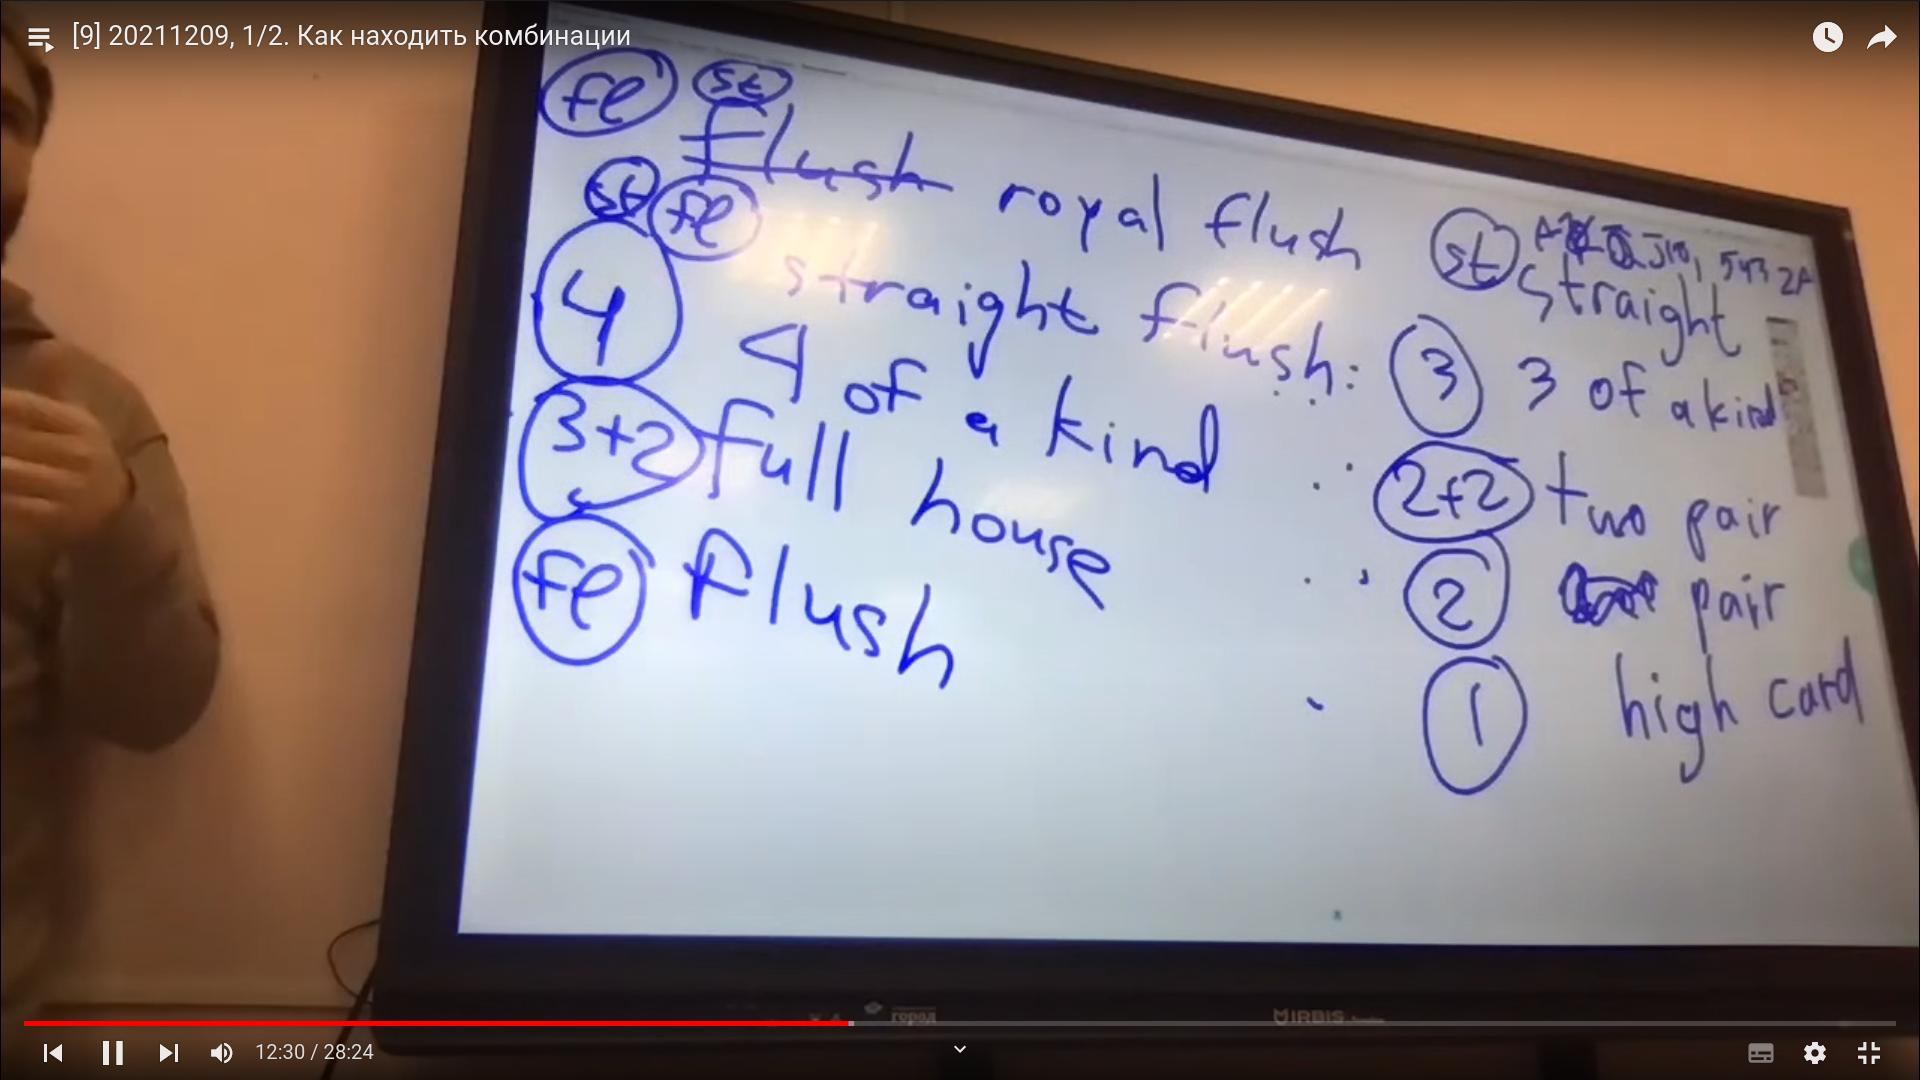 [9] 20211209, 1/2. Как находить комбинации
fl st
flush royal flush
st fl straight flush:
4 4 of a kind
3+2 full house
fl flush
st A J10, 5432A
straight
3 3 of a kind
2+2 two pair
2 pair
1 high card
город
IRBIS
12:30 / 28:24